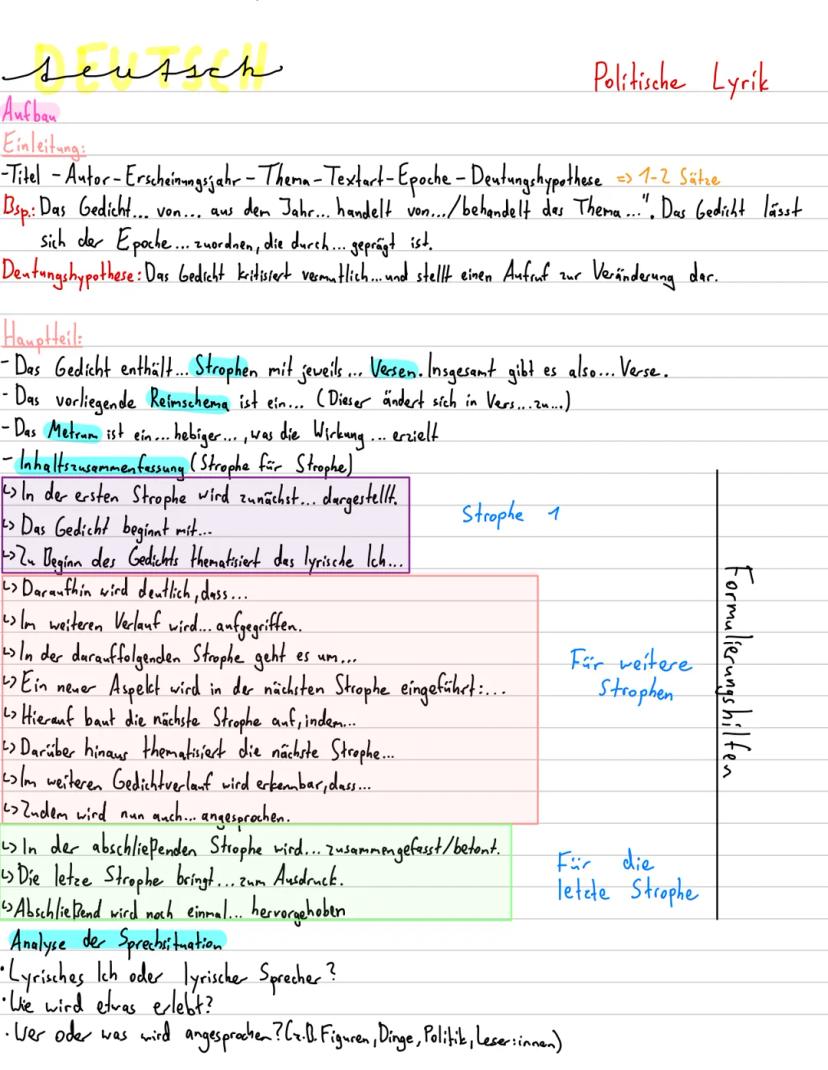 DEUTSCH
Deutsch
Politische Lyrik
Aufbau
Einleitung:
-Titel -Autor-Erscheinungsjahr-Thema-Textart-Epoche-Deutungshypothese => 1-2 Sätze
Bsp.: Das Gedicht... von... aus dem Jahr... handelt von.../behandelt das Thema...". Das Gedicht lässt
sich der Epoche... zuordnen, die durch... geprägt ist.
Deutungshypothese: Das Gedicht kritisiert vermutlich... und stellt einen Aufruf zur Veränderung dar.
Hauptteil:
- Das Gedicht enthält... Strophen mit jeweils... Versen. Insgesamt gibt es also... Verse.
- Das vorliegende Reimschema ist ein... (Dieser ändert sich in Vers...zu...)
- Das Metrum ist ein... hebiger..., was die Wirkung ... erzielt
- Inhaltszusammenfassung (Strophe für Strophe)
↳ In der ersten Strophe wird zunächst... dargestellt.
↳ Das Gedicht beginnt mit...
↳ Zu Beginn des Gedichts thematisiert das lyrische Ich...
Strophe 1
↳ Daraufhin wird deutlich, dass...
↳ Im weiteren Verlauf wird... aufgegriffen.
↳ In der darauffolgenden Strophe geht es um...
↳ Ein neuer Aspekt wird in der nächsten Strophe eingeführt:...
↳ Hierauf baut die nächste Strophe auf, indem...
↳ Darüber hinaus thematisiert die nächste Strophe...
↳ Im weiteren Gedichtverlauf wird erkennbar, dass...
↳ Zudem wird nun auch... angesprochen.
Für weitere
Strophen
↳ In der abschließenden Strophe wird... zusammengefasst/betont.
↳ Die letze Strophe bringt... zum Ausdruck.
↳ Abschließend wird noch einmal... hervorgehoben
Für die
letzte Strophe
Formulierungshilfen
Analyse der Sprechsituation
· Lyrisches Ich oder lyrische Sprecher?
· Wie wird etwas erlebt?
· Wer oder was wird angesprochen? (z.B. Figuren, Dinge, Politik, Leser:innen)